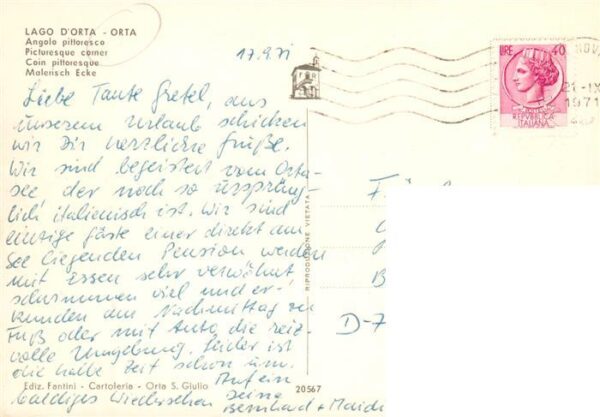 LAGO D'ORTA - ORTA
Angolo pittoresco
Picturesque corner
Coin pittoresque
Malerisch Ecke
17.9.71
LIRE 40
REPVBBLICA
ITALIANA
21-IX
1971
Liebe Tante Gretel, aus
unserem Urlaub schicken
wir Dir herzliche Grüße.
Wir sind begeistert vom Orta-
see der noch so ursprüng-
lich italienisch ist. Wir sind
einzige Gäste einer direkt am
See liegenden Pension werden
mit Essen sehr verwöhnt,
schwimmen viel und er-
kunden am Nachmittag zu
Fuß oder mit Auto die reiz-
volle Umgebung. Leider ist
die halbe Zeit schon um.
Auf ein
baldiges Wiedersehen Deine
Bernhard + Maidi
RIPRODUZIONE VIETATA
D-7
Ediz. Fantini - Cartoleria - Orta S. Giulio
20567